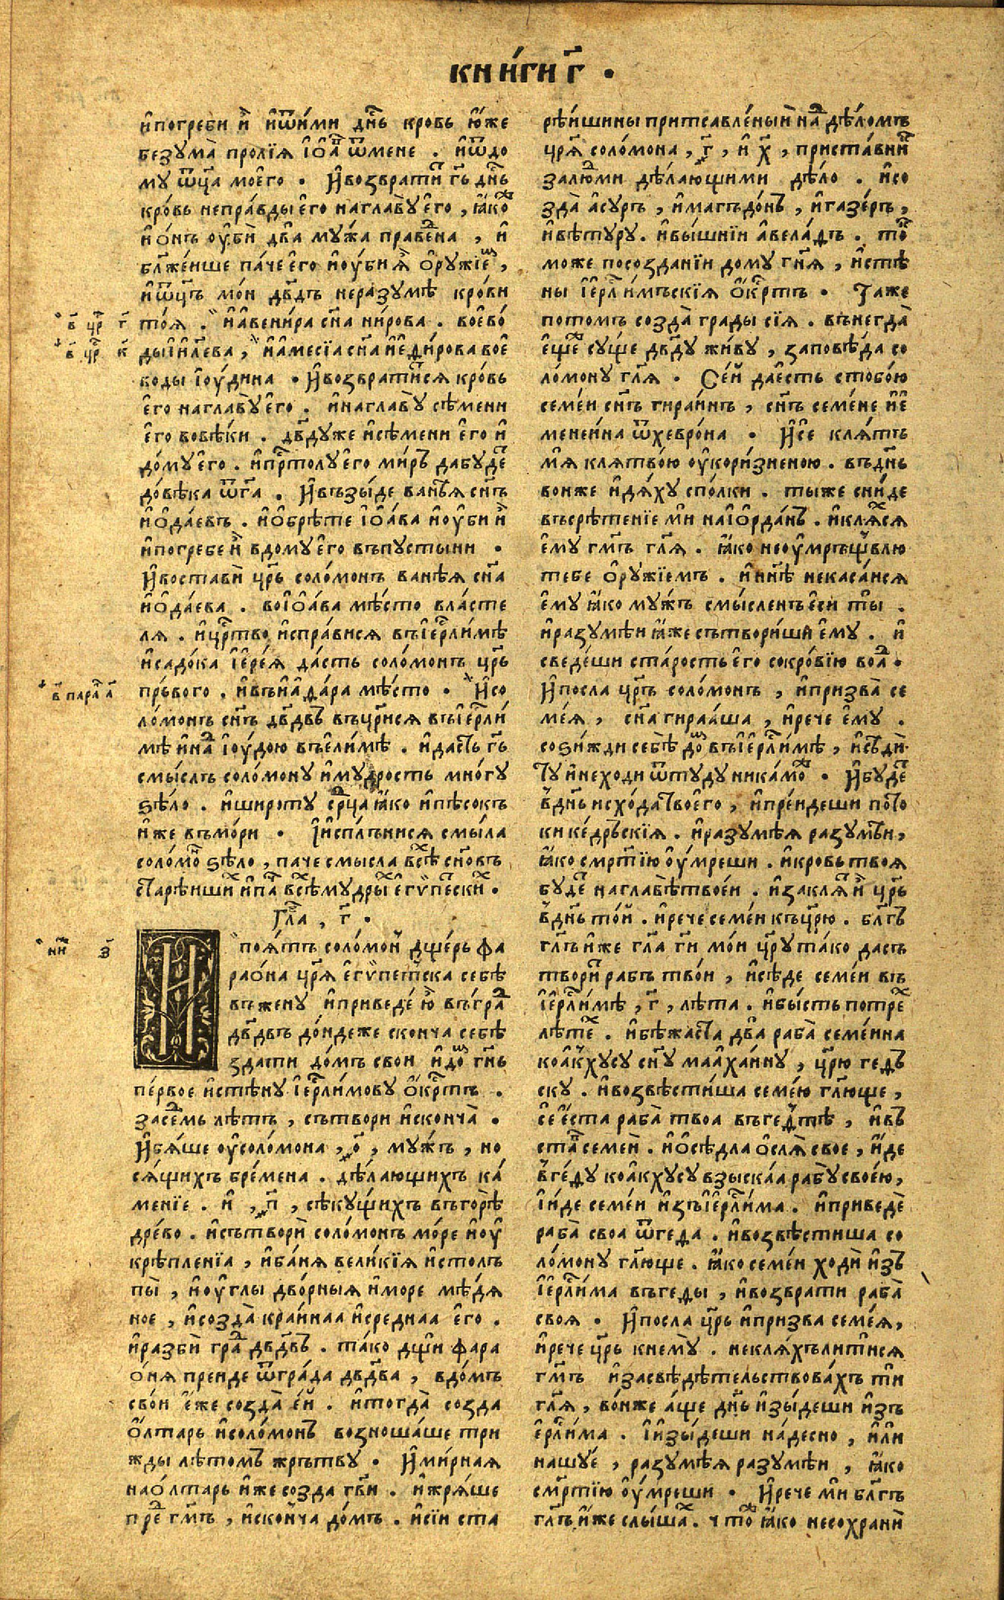 кни́ги г҃ .
и҆погреби и҆ и҆ѿи́ми дн҃ь кровь ю҆́же
безума̀ пролїѧ і҆ѡ҆а́в ѿмене . и҆ѿдо
му ѿц҃а мое́го . И҆возврати́ гь҃ дн҃ь
кро́вь непра́вды е҆го наглавꙋ̀ е҆го , ꙗ҆ко
и҆ о́нъ оу҆бѝ два̀ мꙋ́жа праве́на , и҆
бл҃же́нше па́че е҆го и҆оу҆би ѧ҆̀ ѻ҆рꙋжїем ,
и҆ѿц҃ъ мо́и дв҃дъ неразꙋмѣ̀ кро́ви
то́ѧ . и҆а҆вени́ра сн҃а ни́рова . воево́
в҃ цр҃ г҃
в҃ цр҃ к҃
ды і҆и҃лева , и҆а҆месі́а сн҃а и҆е҆ди́рова вое
воды і҆оу́дина . И҆возврати́тсѧ кро́вь
е҆го наглавꙋ̀ е҆го . и҆наглавꙋ̀ сѣ́мени
е҆го вовѣ́ки . дв҃дꙋже и҆сѣ́мени е҆го и҆
до́мꙋ е҆го . и҆прⷭ҇толꙋ е҆го ми́ръ дабꙋ́дет
до́вѣка ѿг҃а . И҆възы́де ване́ѧ сн҃ъ
и҆ѡ҆да́евъ . и҆ѡ҆брѣ́те і҆ѡ҆а́ва и҆оу҆би и҆
и҆погребе и҆̀ вдомꙋ̀ е҆го въпꙋсты́ни .
И҆воста́ви цр҃ь соло́монъ ване́ѧ сн҃а
и҆ѡ҆да́ева . воі҆ѡ҆а́ва мѣ́сто вла́сте
лѧ . и҆цр҃тво и҆спра́висѧ въі҆ерⷭ҇ли́мѣ
и҆садо́ка і҆ере́ѧ да́сть соло́монъ цр҃ь
пръвого . въа҆вїаѳа́ра мѣ́сто . И҆со
в҃ парал҃ а҃
ло́монъ сн҃ъ дв҃двъ въцр҃исѧ въі҆ерⷭ҇ли́
мѣ и҆на́д і҆оу́дою въе҆ли́мѣ . и҆да́сть гь҃
смы́слъ соло́монꙋ и҆мꙋ́дрость мно́гꙋ
ѕѣ́ло . и҆широ́тꙋ срⷣца ꙗ҆ко и҆пѣсо́къ
и҆́же въмо́ри . И҆и҆спльни́сѧ смы́сла
соломо́н ѕѣ́ло , паче смы́сла всѣ́х сн҃овъ
старѣ́йших и҆па́ч всѣ́хмꙋ́дрых е҆гѵ́петских .
Гла҃ , г҃ .
Ипоѧ́тъ соло́мон дще́рь фа
нн҃ѣ з҃
рао́на цр҃ѧ е҆гѵ́петска себѣ̀
въженꙋ̀ и҆приведе́ ю҆ въгра́д
дв҃двъ до́ндеже сконча себѣ̀
зда́ти до́мъ сво́и и҆до́м гн҃ь
пе́рвое и҆стѣ́нꙋ і҆ерⷭ҇ли́мовꙋ ѻ҆́крⷭ҇тъ .
засе́дмь лѣ́тъ , сътвори и҆сконча̀ .
И҆бѧ́ше оу҆соло́мона , о҃ , мꙋ́жъ , но
сѧ́щихъ бре́мена . дѣ́лающихъ ка́
мен́їе . и҆ , п҃ , сѣкꙋ́щихъ въго́рѣ
дре́во . и҆сътвори соло́монъ мо́ре и҆оу҆
крѣпле́нїа , и҆ба́нѧ вели́кїѧ и҆столъ
пы̀ , и҆оу҆́глы дво́рныѧ и҆мо́ре мѣ́дѧ
ное , и҆созда̀ кра́йнаа и҆сре́днаа е҆го .
и҆разбѝ гра́д дв҃двъ . та́ко дщ҃и фара
о́нѧ пре́иде ѿгра́да дв҃два , вдо́мъ
сво́и е҆же созда̀ е҆́й . и҆тогда̀ созда
ѻ҆лта́рь и҆соло́монъ возноша́ше три
жды лѣ́томъ жрътвꙋ . И҆ми́рнаѧ
наѻ҆лта́рь и҆́же созда гв҃и . и҆жрѧ́ше
пре́д гм҃ъ , и҆сконча до́мъ . и҆сїи ста
рѣ́ишины притсавле́ныѝ над дѣ́ломъ
цр҃ѧ соло́мона , г҃ , и҆ х҃ , приста́вник
залю́дми дѣ́лающими дѣ́ло . и҆со
зда̀ а҆сꙋръ , и҆магъдо́нъ , и҆газе́ръ ,
и҆веѳꙋрꙋ . и҆вы́шнїи а҆вела́дъ . то́к
може посозда́нїи до́мꙋ гн҃ѧ , и҆стѣ
ны і҆ерⷭ҇лимъскїѧ ѻ҆́крⷭ҇тъ . Таже
пото́мъ созда̀ гра́ды сїѧ . вънегда̀
е҆щѐ сꙋ́ще дв҃дꙋ жи́вꙋ , заповѣ́да со
ло́монꙋ гл҃ѧ . Се́й да е҆сть стобо́ю
семе́и сн҃ъ гира́инъ , сн҃ъ семе́не и҆е҆
мене́ина ѿхевро́на . И҆се клѧ́тъ
мѧ́ клѧтво́ю оу҆кори́зненою . въдн҃ь
во́нже и҆дѧ́хꙋ спо́лки . ты́же сни́де
въсрѣ́тенїе ми наі҆ѻ҆рда́нъ . и҆клѧ́хсѧ
е҆мꙋ гм҃ъ гл҃ѧ . ꙗ҆́ко неоу҆мрьщвлю
тебе ѻ҆рꙋ́жїемъ . и҆ нн҃ѣ некаса́исѧ
е҆мꙋ ꙗ҆ко мꙋ́жъ смы́сленъ е҆си ты̀ .
и҆разꙋмѣ́и ꙗ҆́же сътвориши е҆мꙋ . и҆
сведе́ши ста́рость е҆го сокро́вїю воа́д .
И҆посла цр҃ъ соло́монъ , и҆призва̀ се
ме́ѧ , сн҃а гираа́ша , и҆рече е҆мꙋ .
соѕи́жди себѣ̀ до́м въі҆ерⷭ҇ли́мѣ , и҆сѣди
тꙋ̀ и҆неходи ѿтꙋдꙋ никамо́ж . И҆бꙋ́дет
вдн҃ь исхо́да твоего̀ , и҆пре́идеши пото́
ки ке́дръскїѧ . и҆разꙋмѣ́ѧ разꙋмѣ́и ,
ꙗ҆ко смртїю оу҆́мреши . и҆кро́вь твоѧ
бꙋ́дет наглавѣ̀ твое́и . и҆закла́т и҆̀ цр҃ь
вдн҃ь то́й . и҆рече семе́и къцр҃ю . бл҃гъ
гл҃ъ и҆́же гл҃а ги҃ мо́и цр҃ꙋ та́ко дасъ
твори́т рабъ тво́и , и҆сѣ́де семе́и въ
і҆ерⷭ҇ли́мѣ , г҃ , лѣ́та . и҆бы́сть потре́х
лѣ́тех . и҆бѣжа́ста два̀ раба̀ семе́ина
коа҆кхꙋсꙋ сн҃ꙋ маахаи́нꙋ , цр҃ю геѳъ
скꙋ . и҆возвѣсти́ша семе́ю гл҃юще ,
се́ е҆ста раба̀ твоа̀ въгеѳѣ̀ , и҆въ
ста̀ семе́й . и҆ѻ҆сѣ́дла ѻ҆слѧ̀ свое , и҆и́де
вге́ѳꙋ коа҆кхꙋсꙋ взыска́а рабꙋ̀ свое́ю ,
и҆и́де семе́и и҆зъі҆ерⷭ҇ли́ма . и҆приведѐ
раба̀ своа̀ ѿге́ѳа . и҆возвѣсти́ша со
ло́монꙋ гл҃юще . ꙗ҆ко семе́и ходѝ и҆зъ
і҆ерⷭ҇ли́ма въгеѳы , и҆возврати раба̀
своѧ . И҆посла цр҃ь и҆призва семе́ѧ ,
и҆рече цр҃ь кнемꙋ̀ . неклѧ́хълитисѧ
гм҃ъ и҆засвѣдѣ́тельствова́хъ ти
гл҃ѧ , во́нже а́ще дн҃ь и҆зы́деши и҆зъ
і҆ерⷭ҇ли́ма . И҆и҆зы́деши на́десно , и҆ли
нашꙋе́ , разꙋмѣ́ѧ разꙋмѣ́и , ꙗ҆ко
смр҃тїю оу҆́мреши . И҆рече ми бл҃гъ
гл҃ъ и҆́же слы́шах . что́ж ꙗ҆ко несохрани